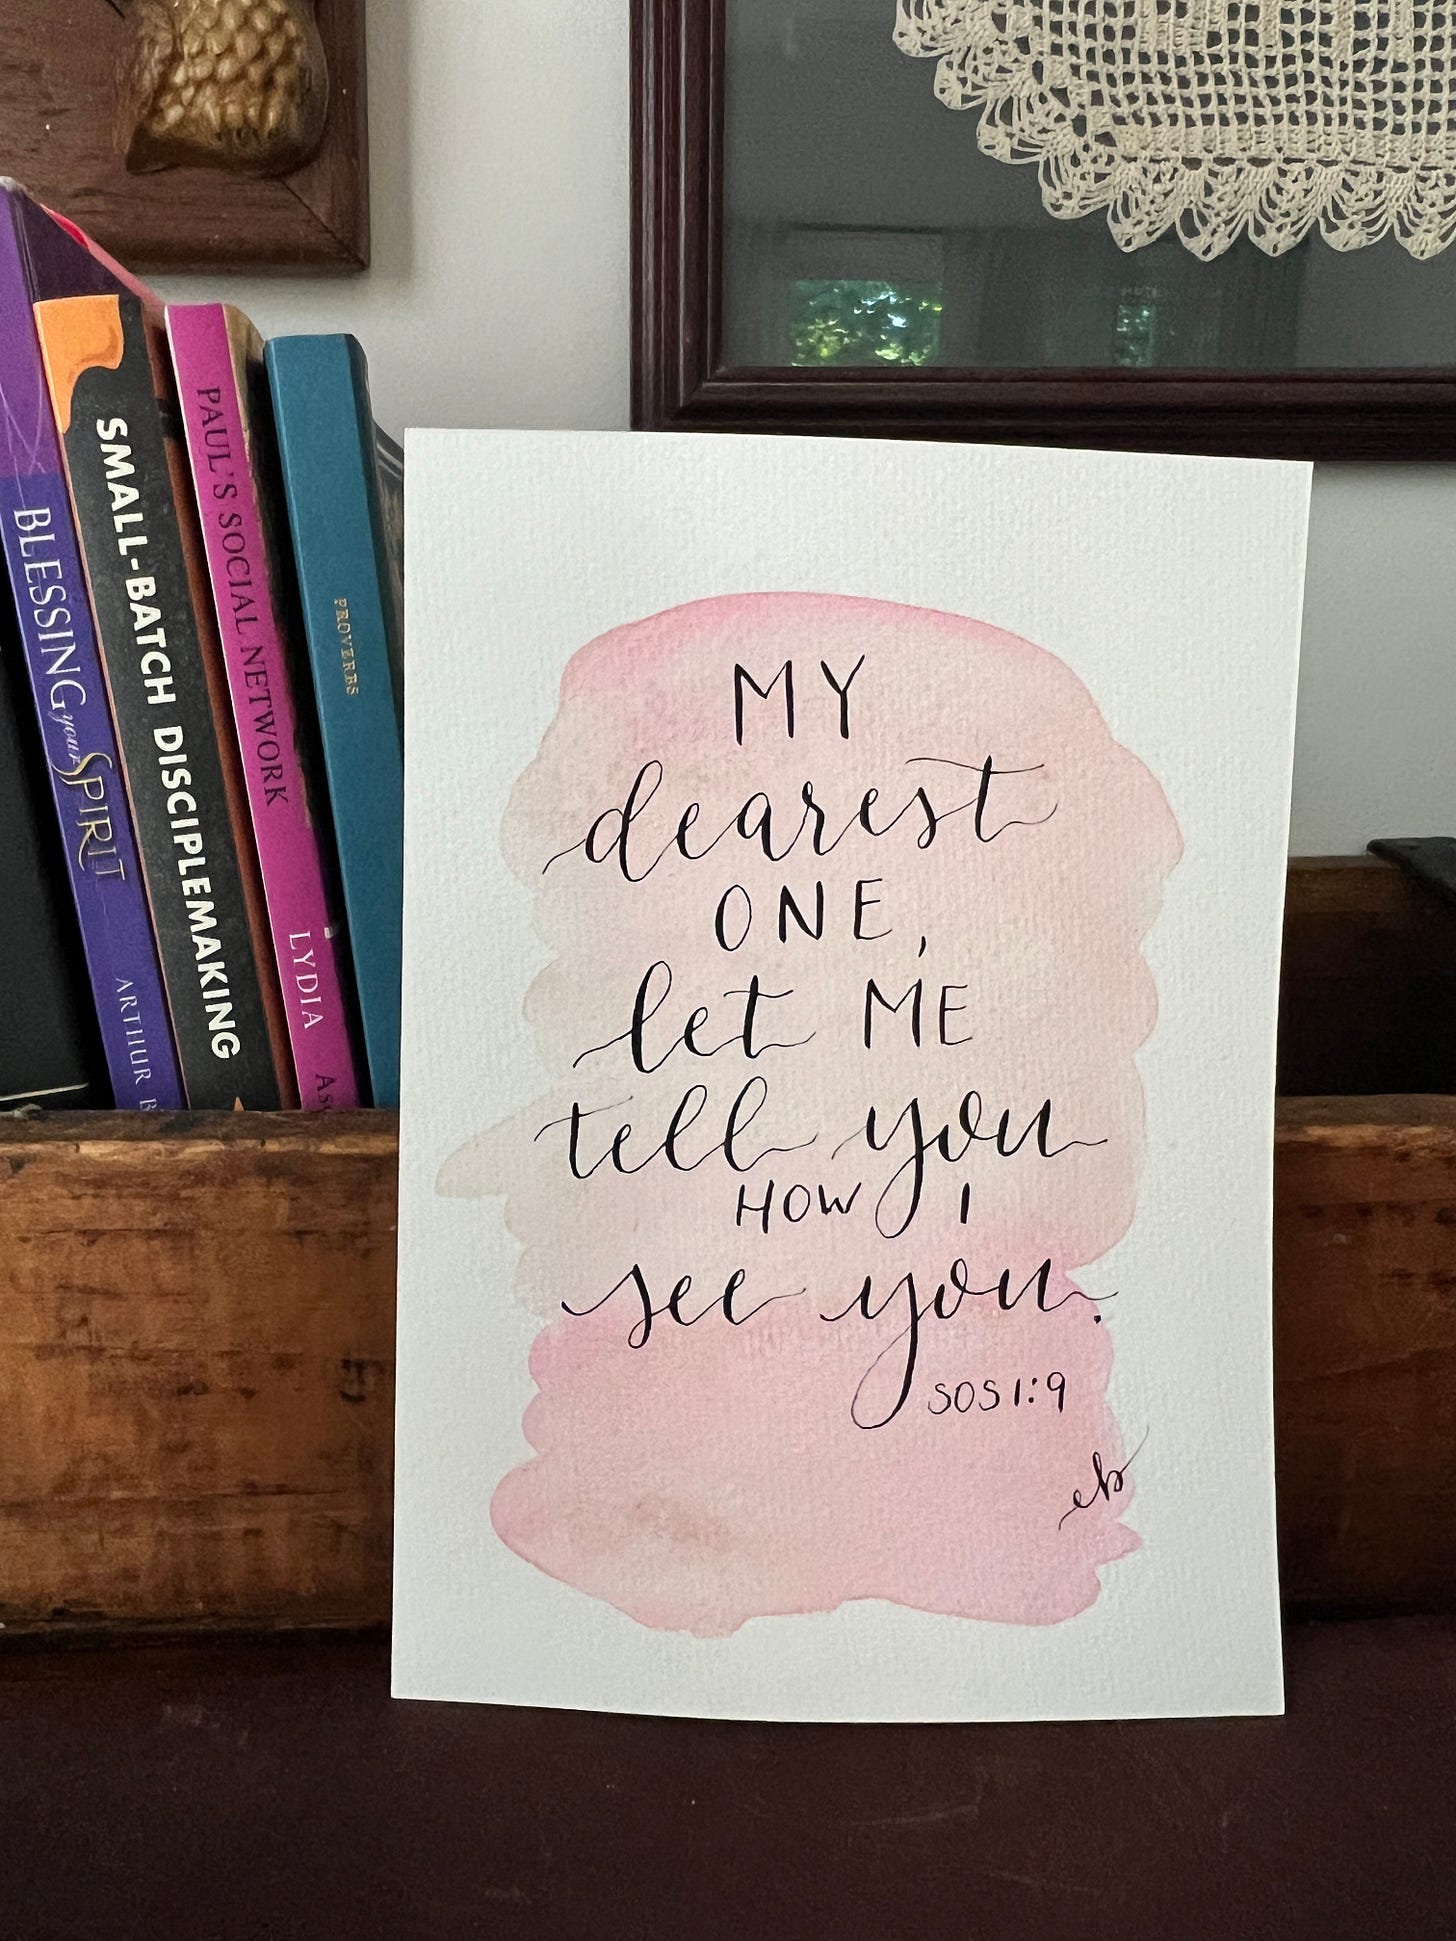 BLESSING your SPIRIT
ARTHUR
SMALL-BATCH DISCIPLEMAKING
PAUL'S SOCIAL NETWORK
LYDIA
PROVERBS
MY
dearest
ONE,
let ME
tell you
HOW I
see you.
SOS 1:9
eb